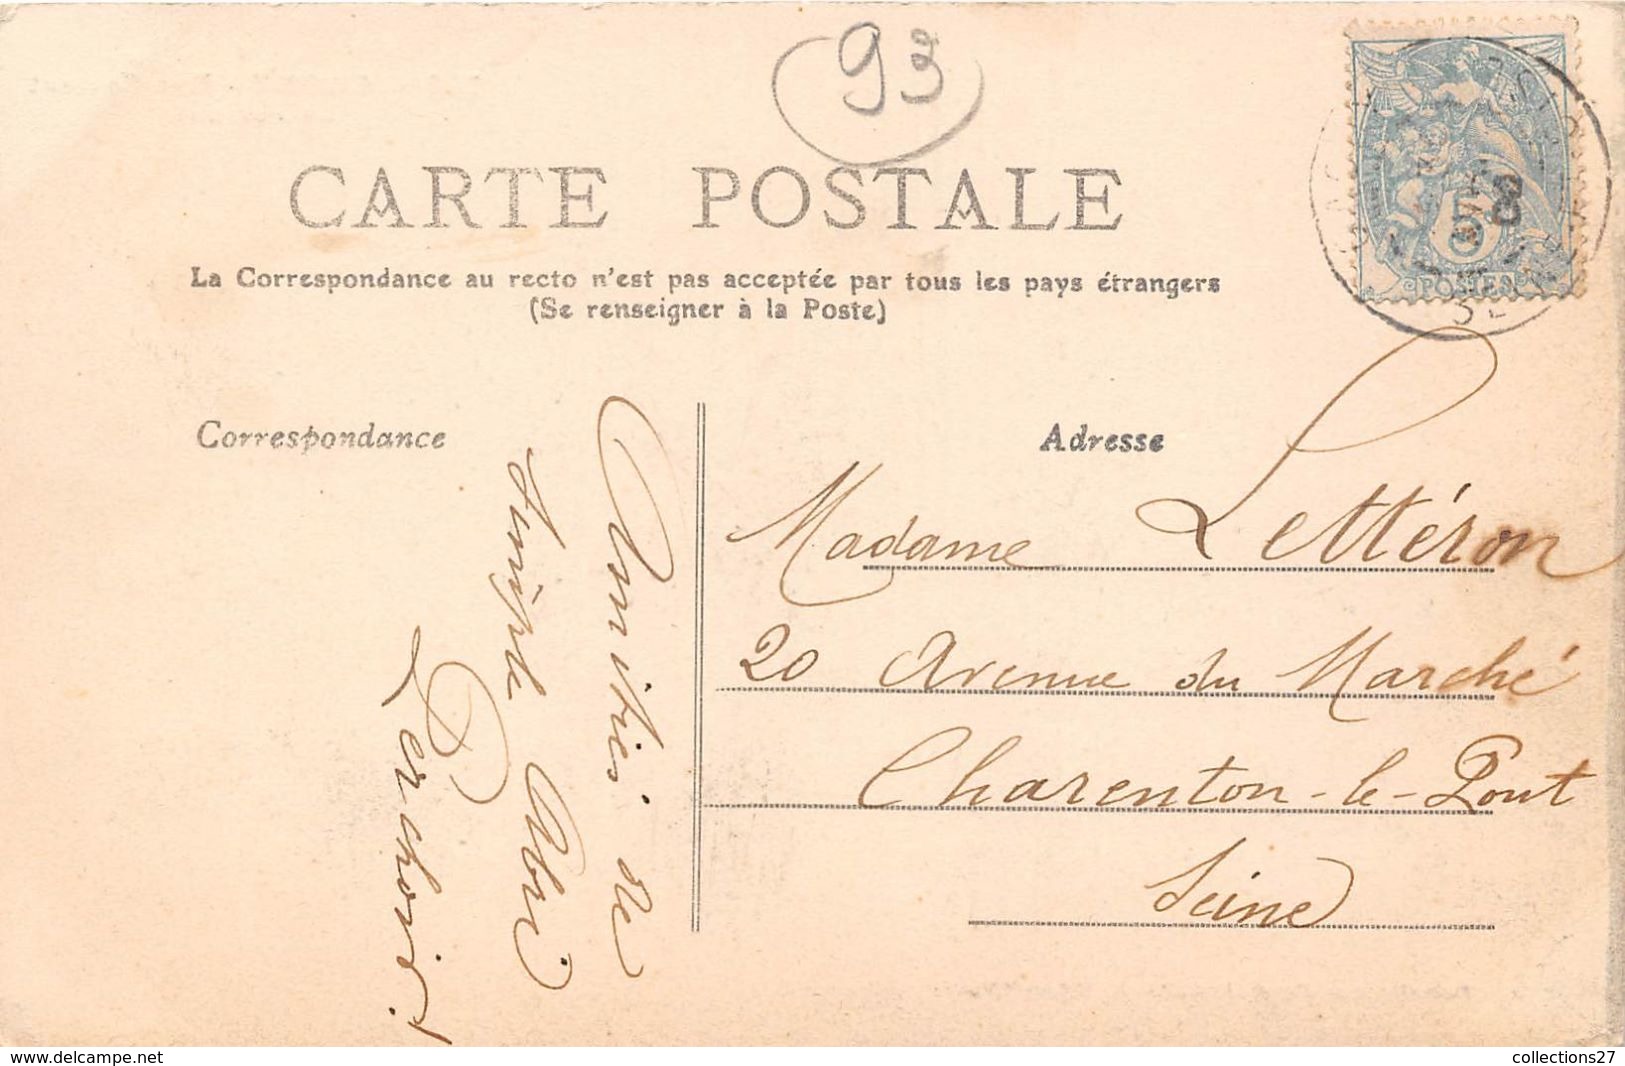 93
CARTE POSTALE
La Correspondance au recto n'est pas acceptée par tous les pays étrangers
(Se renseigner à la Poste)
POSTES
Correspondance
Adresse
Amitiés de
Madame Lettéron
20 Avenue du Marché
Charenton-le-Pont
Seine
collections27
www.delcampe.net